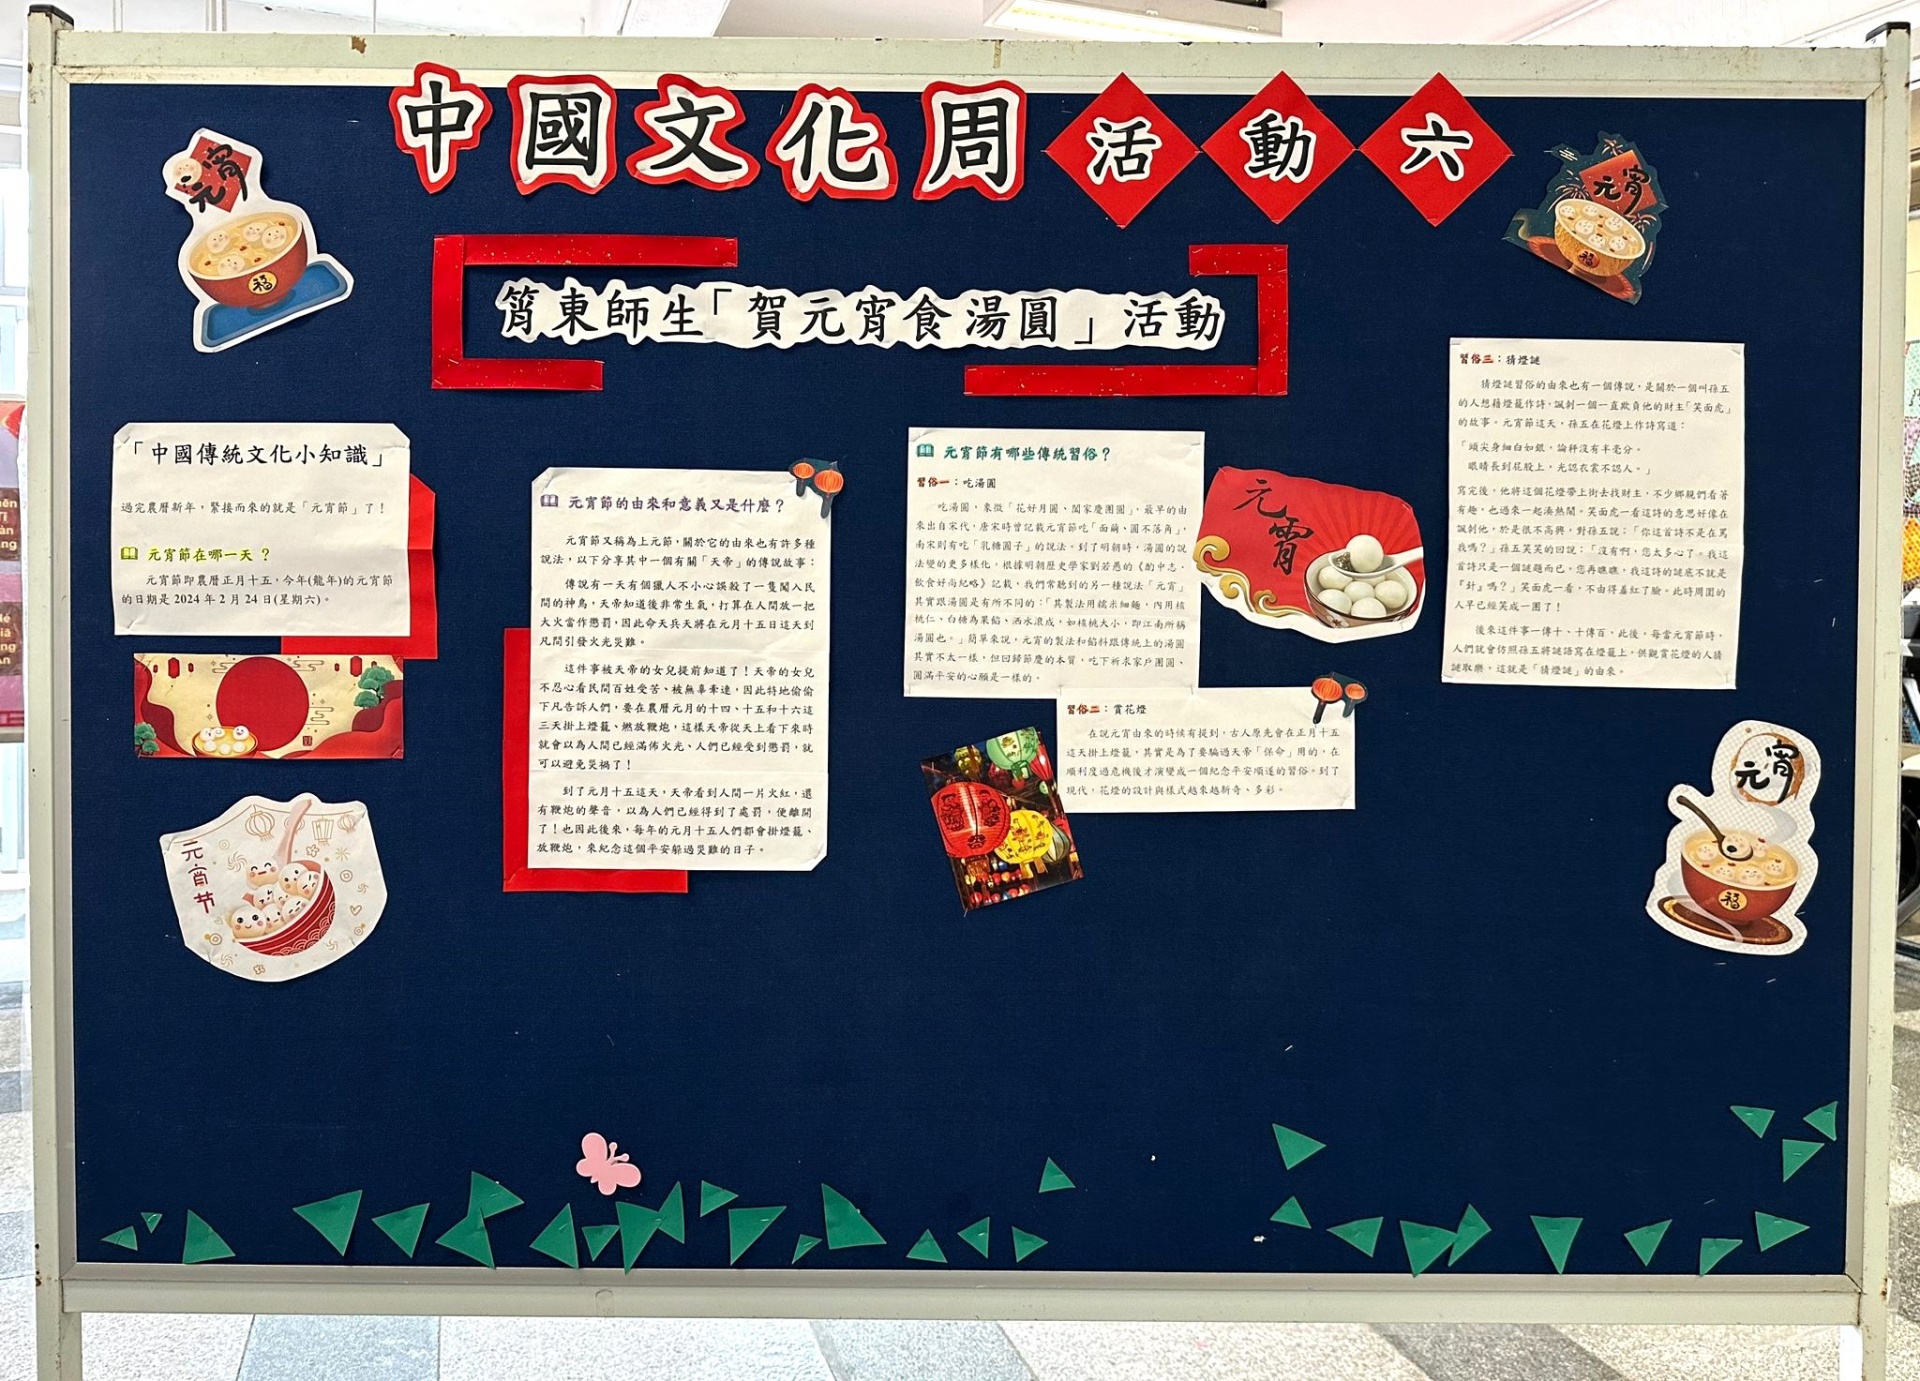 中國文化周活動六
筲東師生「賀元宵食湯圓」活動
元宵
元宵
福
福
「中國傳統文化小知識」
過完農曆新年，緊接而來的就是「元宵節」了！
元宵節在哪一天？
元宵節即農曆正月十五，今年(龍年)的元宵節
的日期是 2024 年 2 月 24 日(星期六)。
元宵节
元宵節的由來和意義又是什麼？
元宵節又稱為上元節，關於它的由來也有許多種
說法，以下分享其中一個有關「天帝」的傳說故事：
傳說有一天有個獵人不小心誤殺了一隻闖入民
間的神鳥，天帝知道後非常生氣，打算在人間放一把
大火當作懲罰，因此命天兵天將在元月十五日這天到
凡間引發火光災難。
這件事被天帝的女兒提前知道了！天帝的女兒
不忍心看民間百姓受苦、被無辜牽連，因此特地偷偷
下凡告訴人們，要在農曆元月的十四、十五和十六這
三天掛上燈籠、燃放鞭炮，這樣天帝從天上看下來時
就會以為人間已經滿佈火光、人們已經受到懲罰，就
可以避免災禍了！
到了元月十五這天，天帝看到人間一片火紅，還
有鞭炮的聲音，以為人們已經得到了處罰，便離開
了！也因此後來，每年的元月十五人們都會掛燈籠、
放鞭炮，來紀念這個平安躲過災難的日子。
元宵節有哪些傳統習俗？
習俗一：吃湯圓
吃湯圓，象徵「花好月圓、闔家慶團圓」，最早的由
來出自宋代，唐宋時曾記載元宵節吃「面繭，圓不落角」，
南宋則有吃「乳糖圓子」的說法。到了明朝時，湯圓的說
法變的更多樣化，根據明朝歷史學家劉若愚的《酌中志·
飲食好尚紀略》記載，我們常聽到的另一種說法「元宵」
其實跟湯圓是有所不同的：「其製法用糯米細麵，內用核
桃仁、白糖為果餡，洒水滾成，如核桃大小，即江南所稱
湯圓也。」簡單來說，元宵的製法和餡料跟傳統上的湯圓
其實不太一樣，但回歸節慶的本質，吃下祈求家戶團圓、
圓滿平安的心願是一樣的。
元宵
習俗二：賞花燈
在說元宵由來的時候有提到，古人原先會在正月十五
這天掛上燈籠，其實是為了要騙過天帝「保命」用的，在
順利度過危機後才演變成一個紀念平安順遂的習俗。到了
現代，花燈的設計與樣式越來越新奇、多彩。
習俗三：猜燈謎
猜燈謎習俗的由來也有一個傳說，是關於一個叫孫五
的人想藉燈籠作詩，諷刺一個一直欺負他的財主「笑面虎」
的故事。元宵節這天，孫五在花燈上作詩寫道：
「頭尖身細白如銀，論秤沒有半毫分。
眼睛長到屁股上，光認衣裳不認人。」
寫完後，他將這個花燈帶上街去找財主，不少鄉親們看著
有趣，也過來一起湊熱鬧。笑面虎一看這詩的意思好像在
諷刺他，於是很不高興，對孫五說：「你這首詩不是在罵
我嗎？」孫五笑笑的回說：「沒有啊，您太多心了。我這
首詩只是一個謎題而已。您再瞧瞧，我這詩的謎底不就是
『針』嗎？」笑面虎一看，不由得羞紅了臉。此時周圍的
人早已經笑成一團了！
後來這件事一傳十、十傳百，此後，每當元宵節時，
人們就會仿照孫五將謎語寫在燈籠上，供觀賞花燈的人猜
謎取樂，這就是「猜燈謎」的由來。
元宵
福